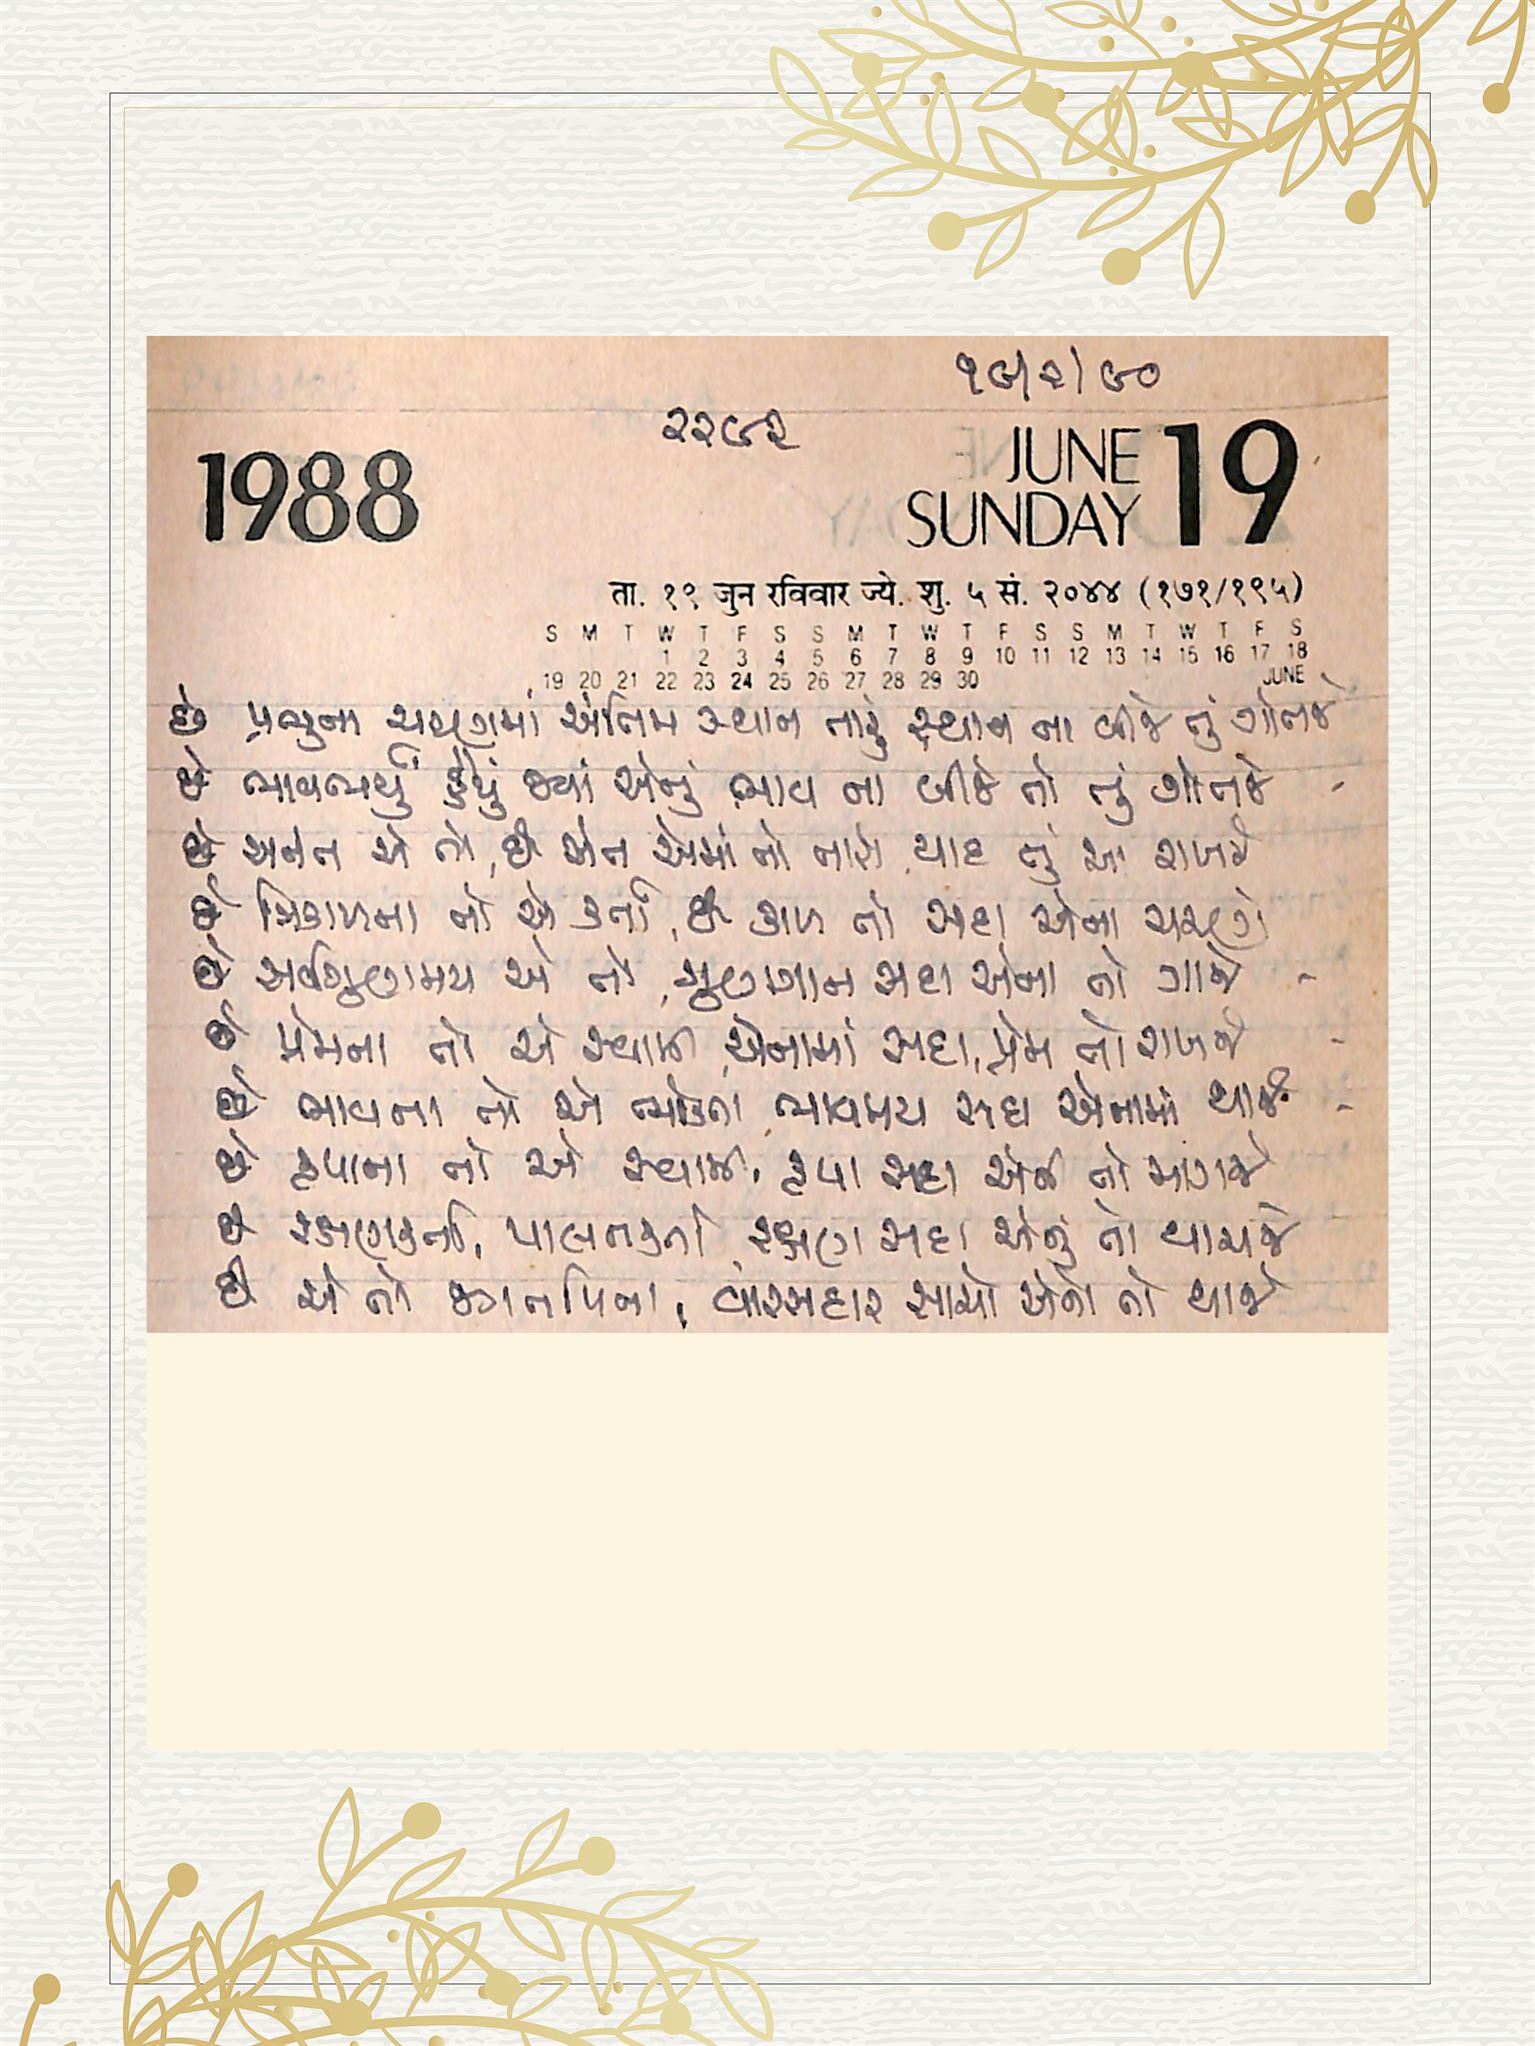 ૧૯/૨/૯૦
૨૨૯૨
1988
JUNE 19
SUNDAY
ता. १९ जुन रविवार ज्ये. शु. ५ सं. २०४४ (१७१/१९५)
S M T W T F S S M T W T F S S M T W T F S
1 2 3 4 5 6 7 8 9 10 11 12 13 14 15 16 17 18
19 20 21 22 23 24 25 26 27 28 29 30 JUNE
છે પ્રભુના ચરણમાં અંતિમ સ્થાન તારું સ્થાન ના બીજે તું ગોતજે
છે ભાવભર્યું હૈયું જ્યાં એનું ભાવ ના બીજે તો તું ગોતજે -
છે અનંત એ તો, છે અંત એમાં તો તારો યાદ તું આ રાખજે
છે ત્રિકાળના તો એ કર્તા, છે કાળ તો સદા એના ચરણે
છે સર્વગુણમય એ તો, ગુણગાન સદા એના તો ગાજે -
છે પ્રેમના તો એ સ્વામી, એનામાં સદા, પ્રેમ તો રાખજે -
છે ભાવના તો એ ભોક્તા, ભાવમય સદા એનામાં થાજે -
છે કૃપાના તો એ સ્વામી, કૃપા સદા એની તો માગજે
છે રક્ષણકર્તા, પાલનકર્તા, રક્ષણ સદા એનું તો યાચજે
છે એ તો જગતપિતા, વારસદાર સાચો એનો તો થાજે